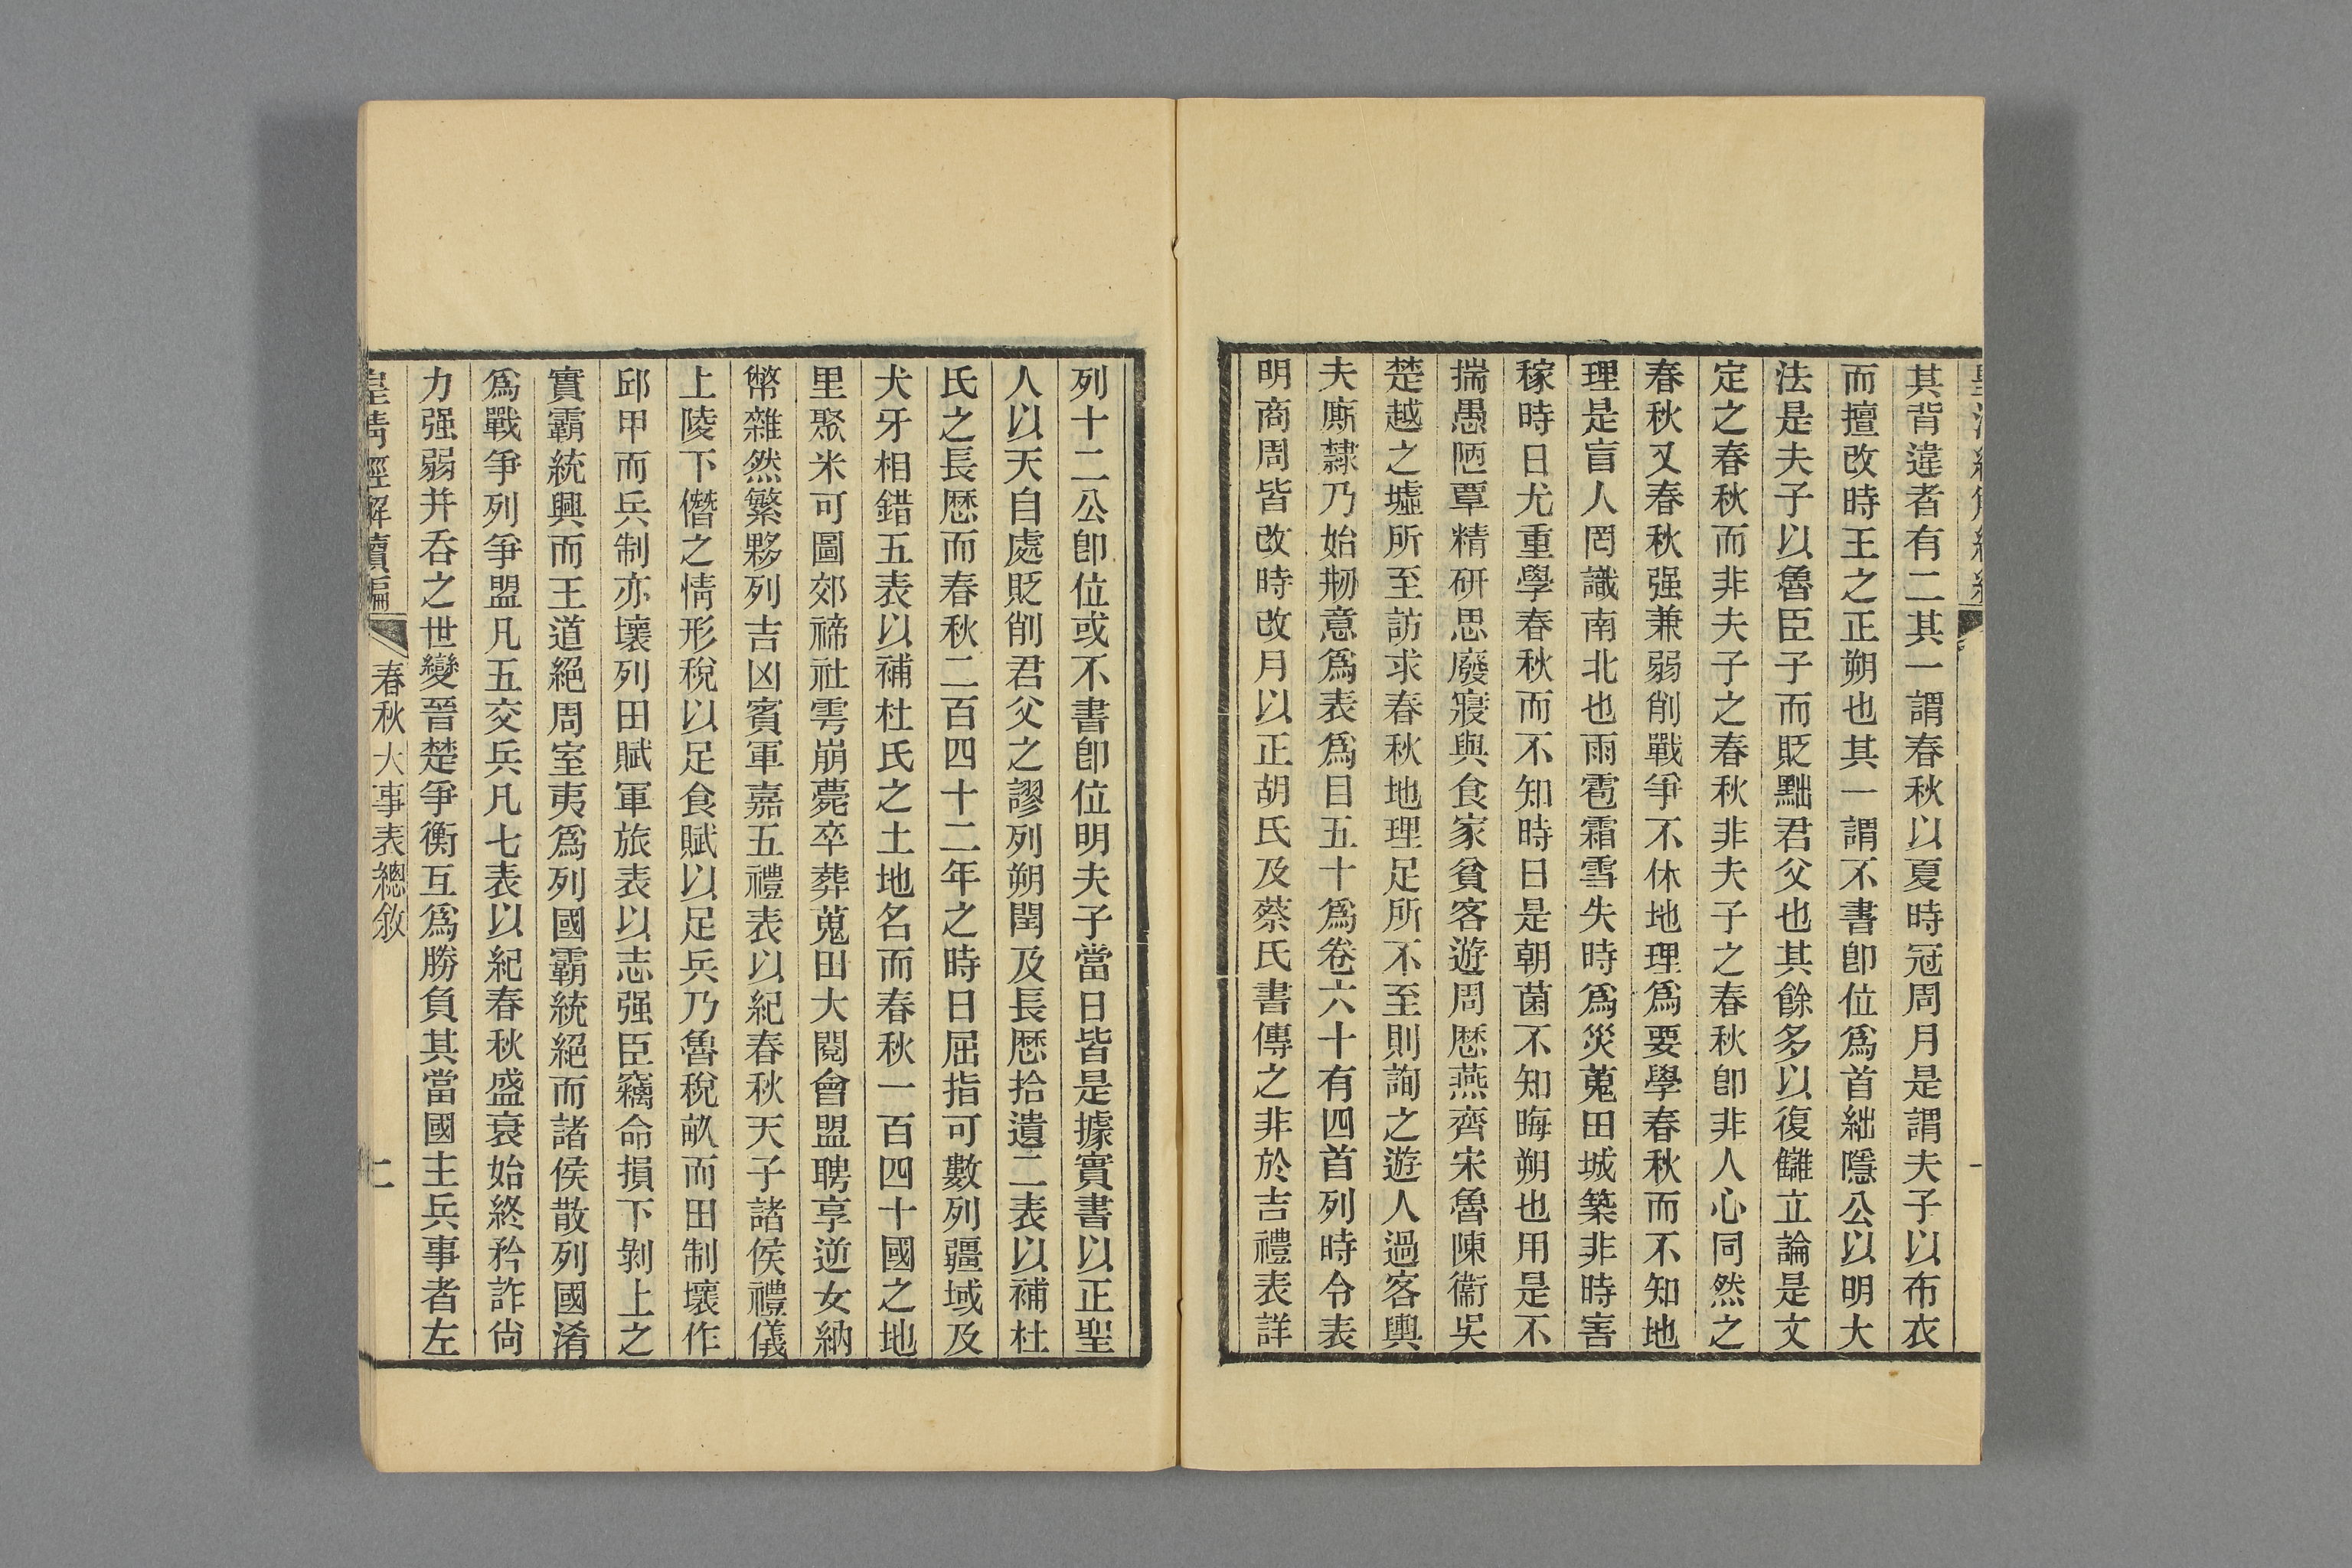 其背違者有二其一謂春秋以夏時冠周月是謂夫子以布衣
而擅改時王之正朔也其一謂不書卽位爲首絀隱公以明大
法是夫子以魯臣子而貶黜君父也其餘多以復讎立論是文
定之春秋而非夫子之春秋非夫子之春秋卽非人心同然之
春秋又春秋强兼弱削戰爭不休地理爲要學春秋而不知地
理是盲人罔識南北也雨雹霜雪失時爲災蒐田城築非時害
稼時日尤重學春秋而不知時日是朝菌不知晦朔也用是不
揣愚陋覃精研思廢寢與食家貧客遊周歷燕齊宋魯陳衞吳
楚越之墟所至訪求春秋地理足所不至則詢之遊人過客輿
夫廝隸乃始刱意爲表爲目五十爲卷六十有四首列時令表
明商周皆改時改月以正胡氏及蔡氏書傳之非於吉禮表詳
列十二公卽位或不書卽位明夫子當日皆是據實書以正聖
人以天自處貶削君父之謬列朔閏及長歷拾遺二表以補杜
氏之長歷而春秋二百四十二年之時日屈指可數列疆域及
犬牙相錯五表以補杜氏之土地名而春秋一百四十國之地
里聚米可圖郊禘社雩崩薨卒葬蒐田大閱會盟聘享逆女納
幣雜然繁夥列吉凶賓軍嘉五禮表以紀春秋天子諸侯禮儀
上陵下僭之情形稅以足食賦以足兵乃魯稅畝而田制壞作
邱甲而兵制亦壞列田賦軍旅表以志强臣竊命損下剝上之
實霸統興而王道絕周室夷爲列國霸統絕而諸侯散列國淆
爲戰爭列爭盟凡五交兵凡七表以紀春秋盛衰始終矜詐尙
力强弱并吞之世變晉楚爭衡互爲勝負其當國主兵事者左
皇淸經解續編 春秋大事表總敘